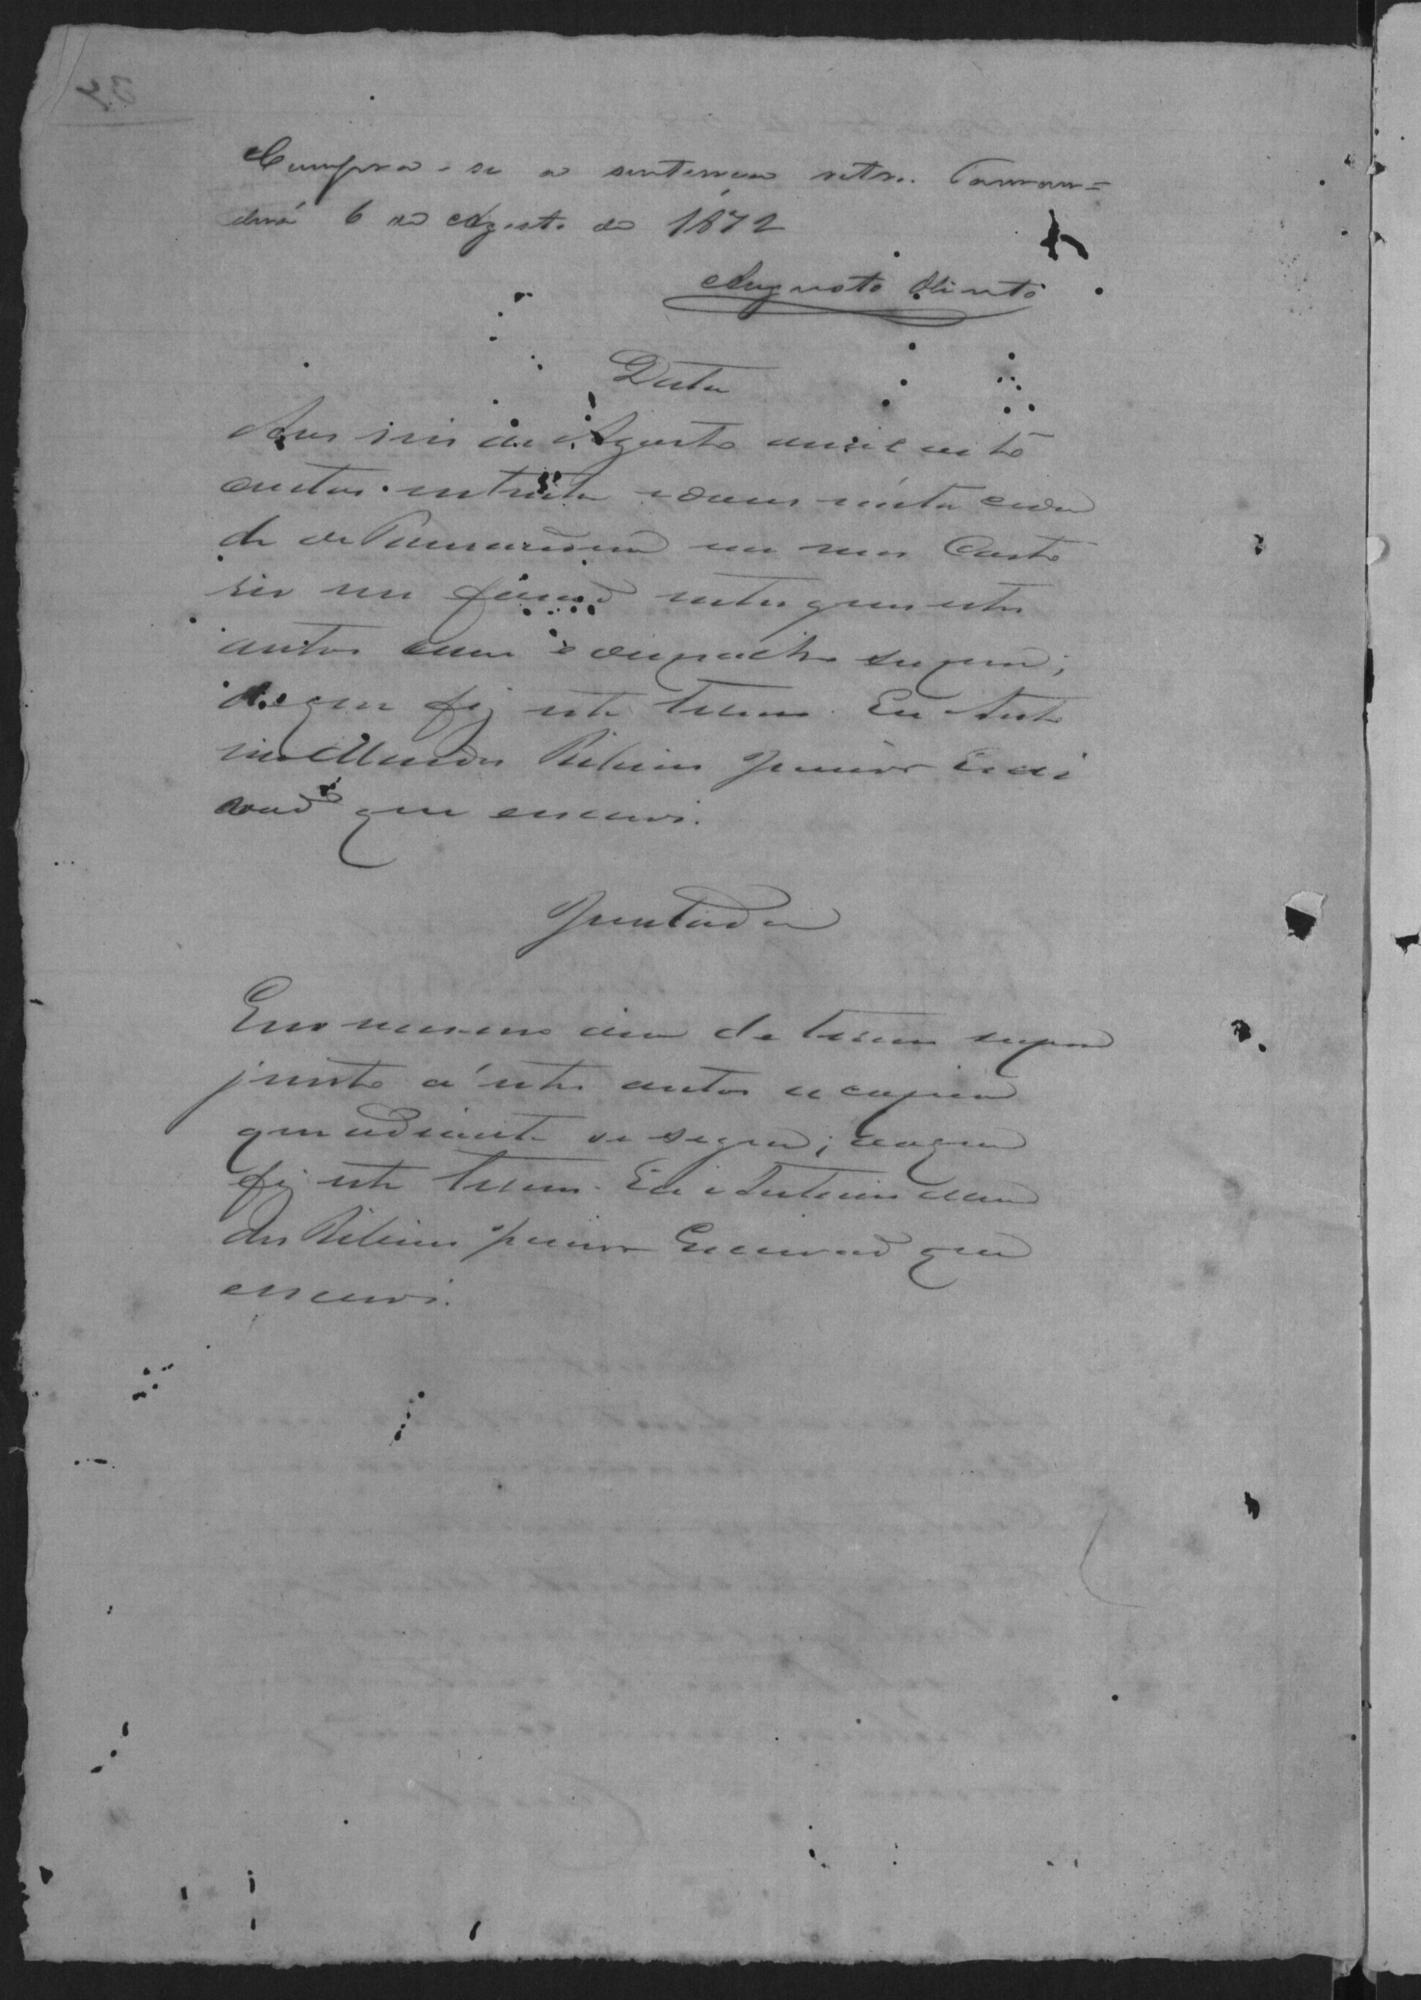 Cumpra-se a sentença retro. Taman=
daré 6 de Agosto de 1872
Augusto
Data
Aos seis de Agosto de mil oito
centos setenta e dous nesta cida
de de Tamandaré em meu Carto
rio me forão entregues estes
autos com o despacho supra;
do que fiz este termo. Eu Anto
nio Mendes Ribeiro Junior Escri
vão que escrevi.
Juntada
Em o mesmo dia do termo supra
junto á estes autos a copia
que adiante se segue; do que
fiz este termo. Eu Antonio Men
des Ribeiro Junior Escrivão que
escrevi.